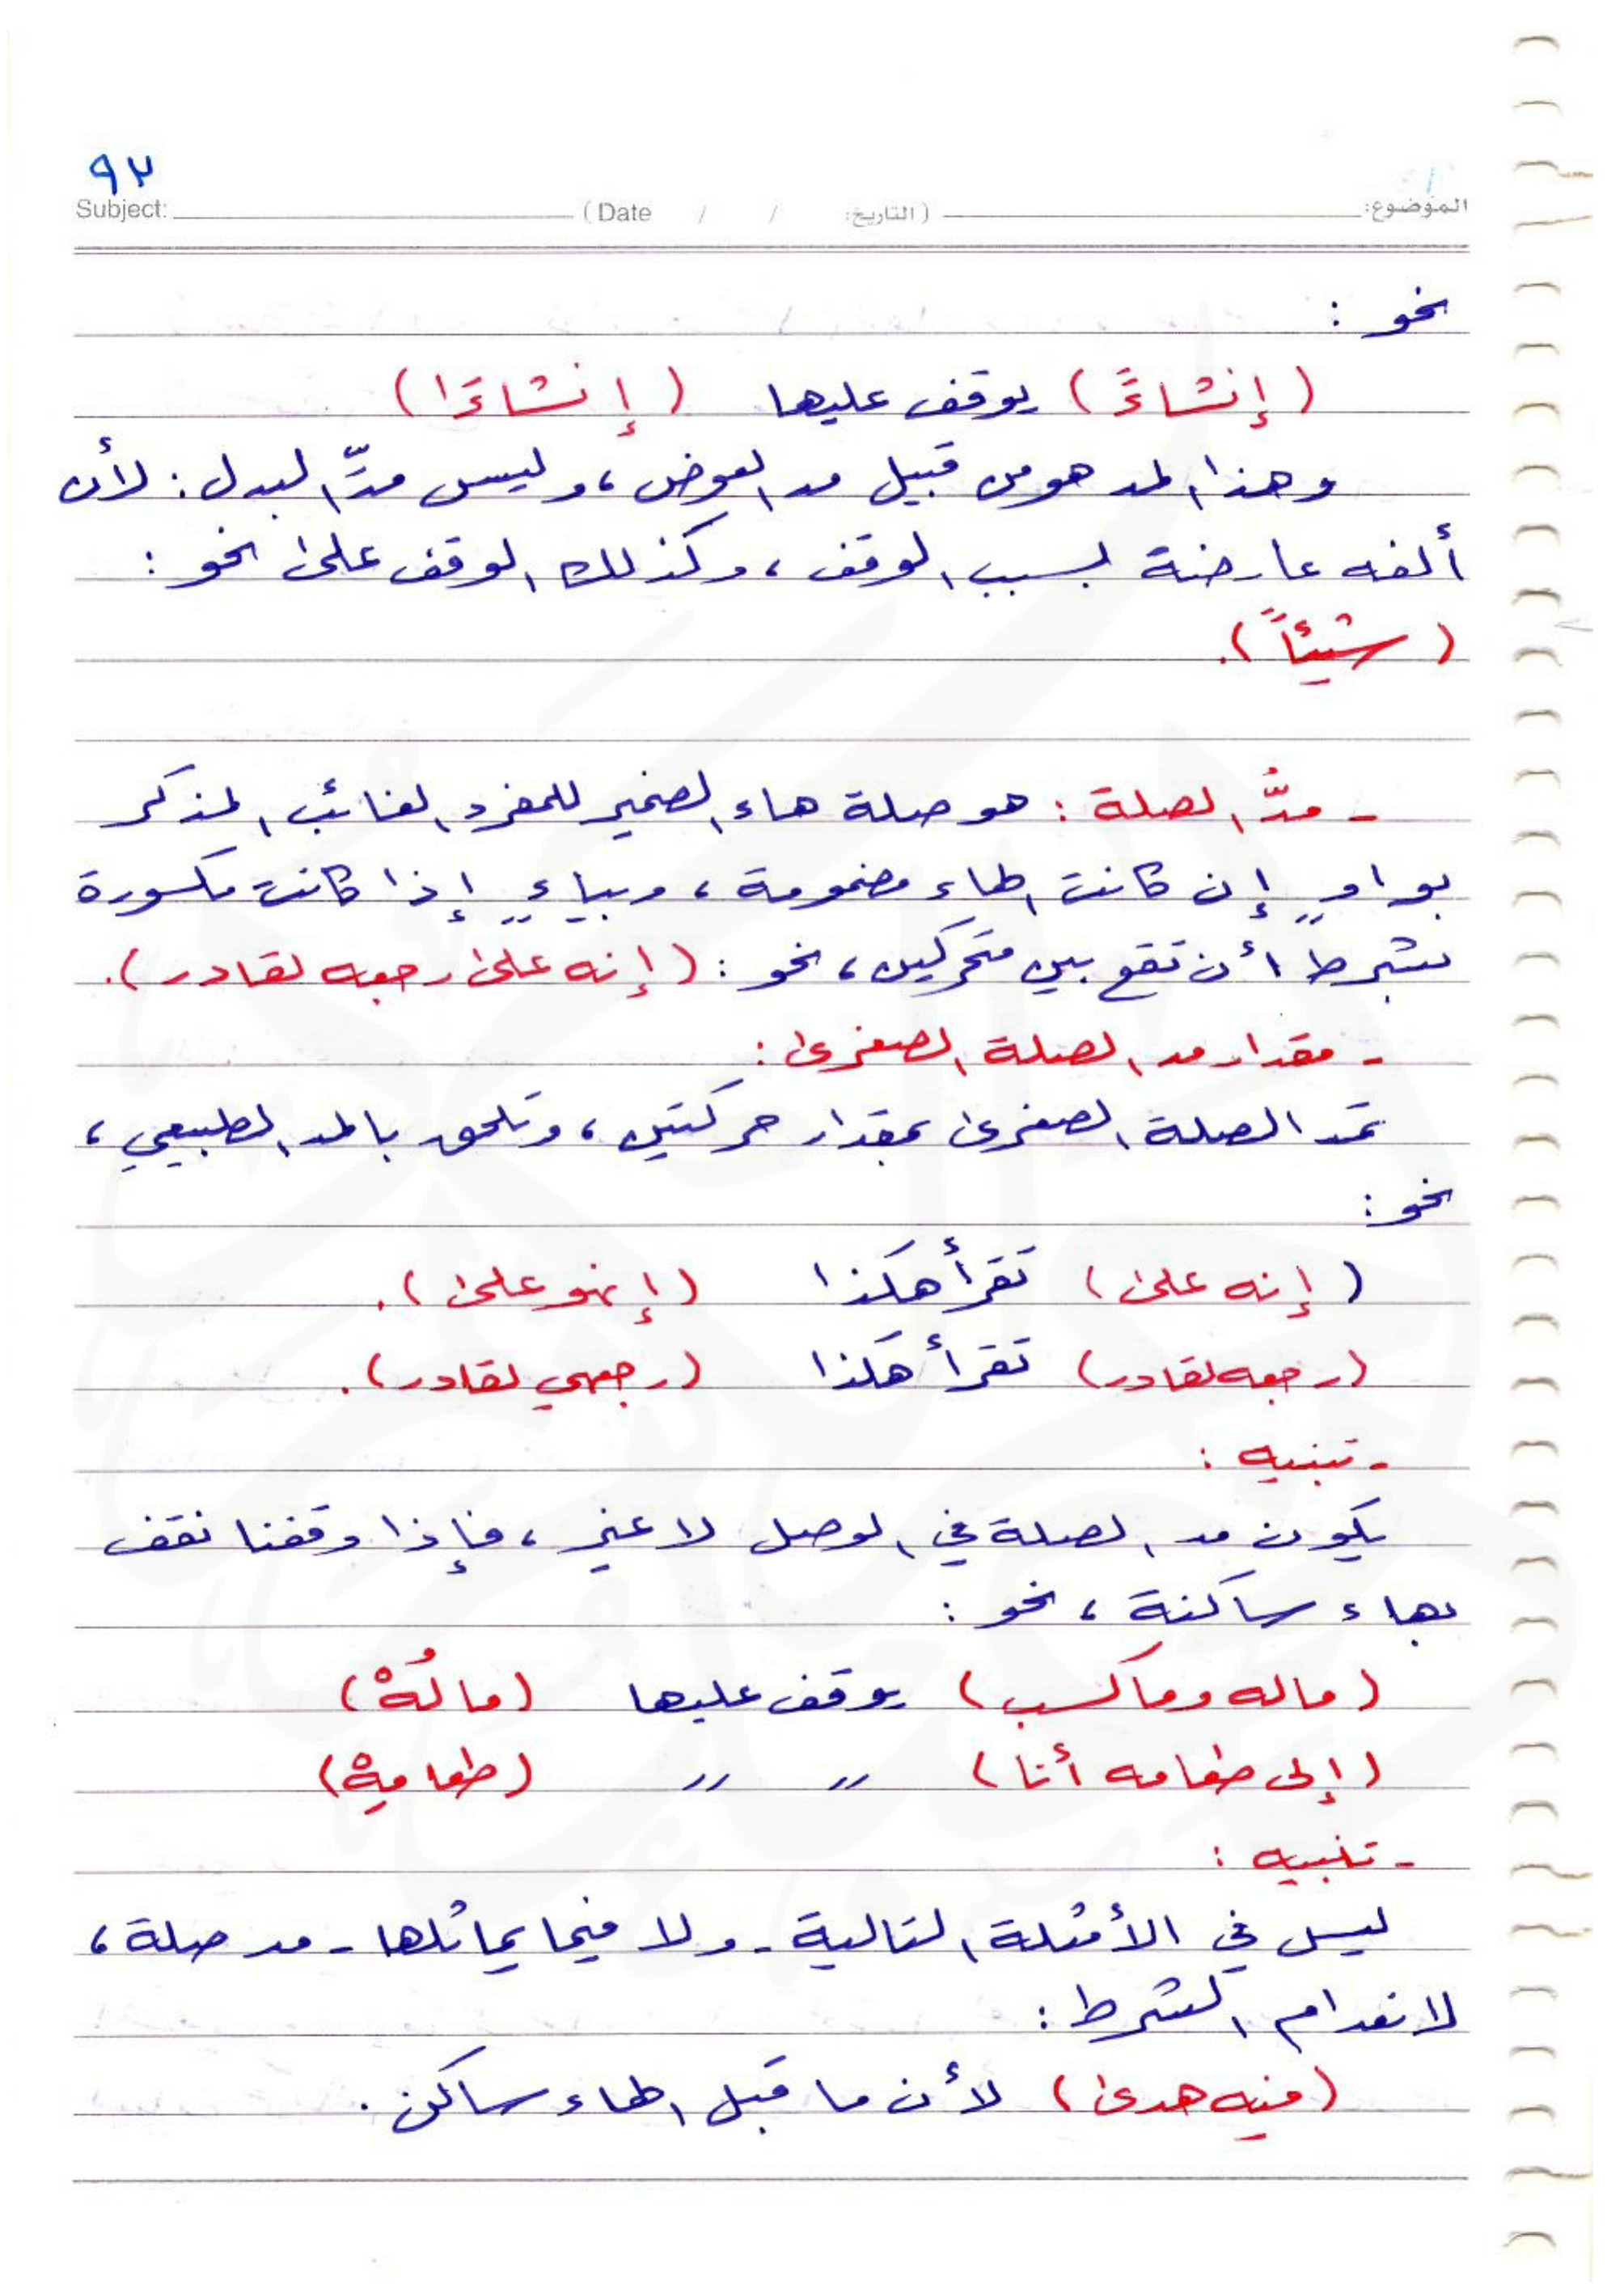 ٩٢
Subject: (Date / / التاريخ:) الموضوع:
نحو :
(إنشاءً) يوقف عليها (إنشاءَا)
وهذا المد هو من قبيل مد العوض، وليس مدّ البدل: لأن
ألفه عارضة بسبب الوقف، وكذلك الوقف على نحو :
(شيئاً).
- مدُّ الصلة : هو صلة هاء الضمير للمفرد الغائب المذكر
بواوٍ إن كانت الهاء مضمومة، وبياءٍ إذا كانت مكسورة
بشرط أن تقع بين متحركين، نحو : (إنه على رجعه لقادر).
- مقدار مد الصلة الصغرى :
تمد الصلة الصغرى بمقدار حركتين، وتلحق بالمد الطبيعي،
نحو :
(إنه على) تقرأ هكذا (إنهو على).
(رجعه لقادر) تقرأ هكذا (رجعهي لقادر).
- تنبيه :
يكون مد الصلة في الوصل لا غير، فإذا وقفنا نقف
بهاء ساكنة، نحو :
(ماله وما كسب) يوقف عليها (مالُهْ)
(إلى طعامه أنا) 〃 〃 (طعامِهْ)
- تنبيه :
ليس في الأمثلة التالية - ولا فيما يماثلها - مد صلة،
لانعدام الشرط :
(فيه هدى) لأن ما قبل الهاء ساكن.